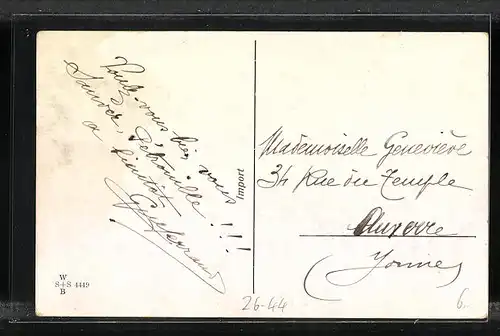 Voulez-vous bien vous
Sauver, Petrouille !!!
a bientôt
Import
Mademoiselle Geneviève
34 Rue du Temple
Auxerre
(Yonne)
W
S+S 4449
B
26-44
6.